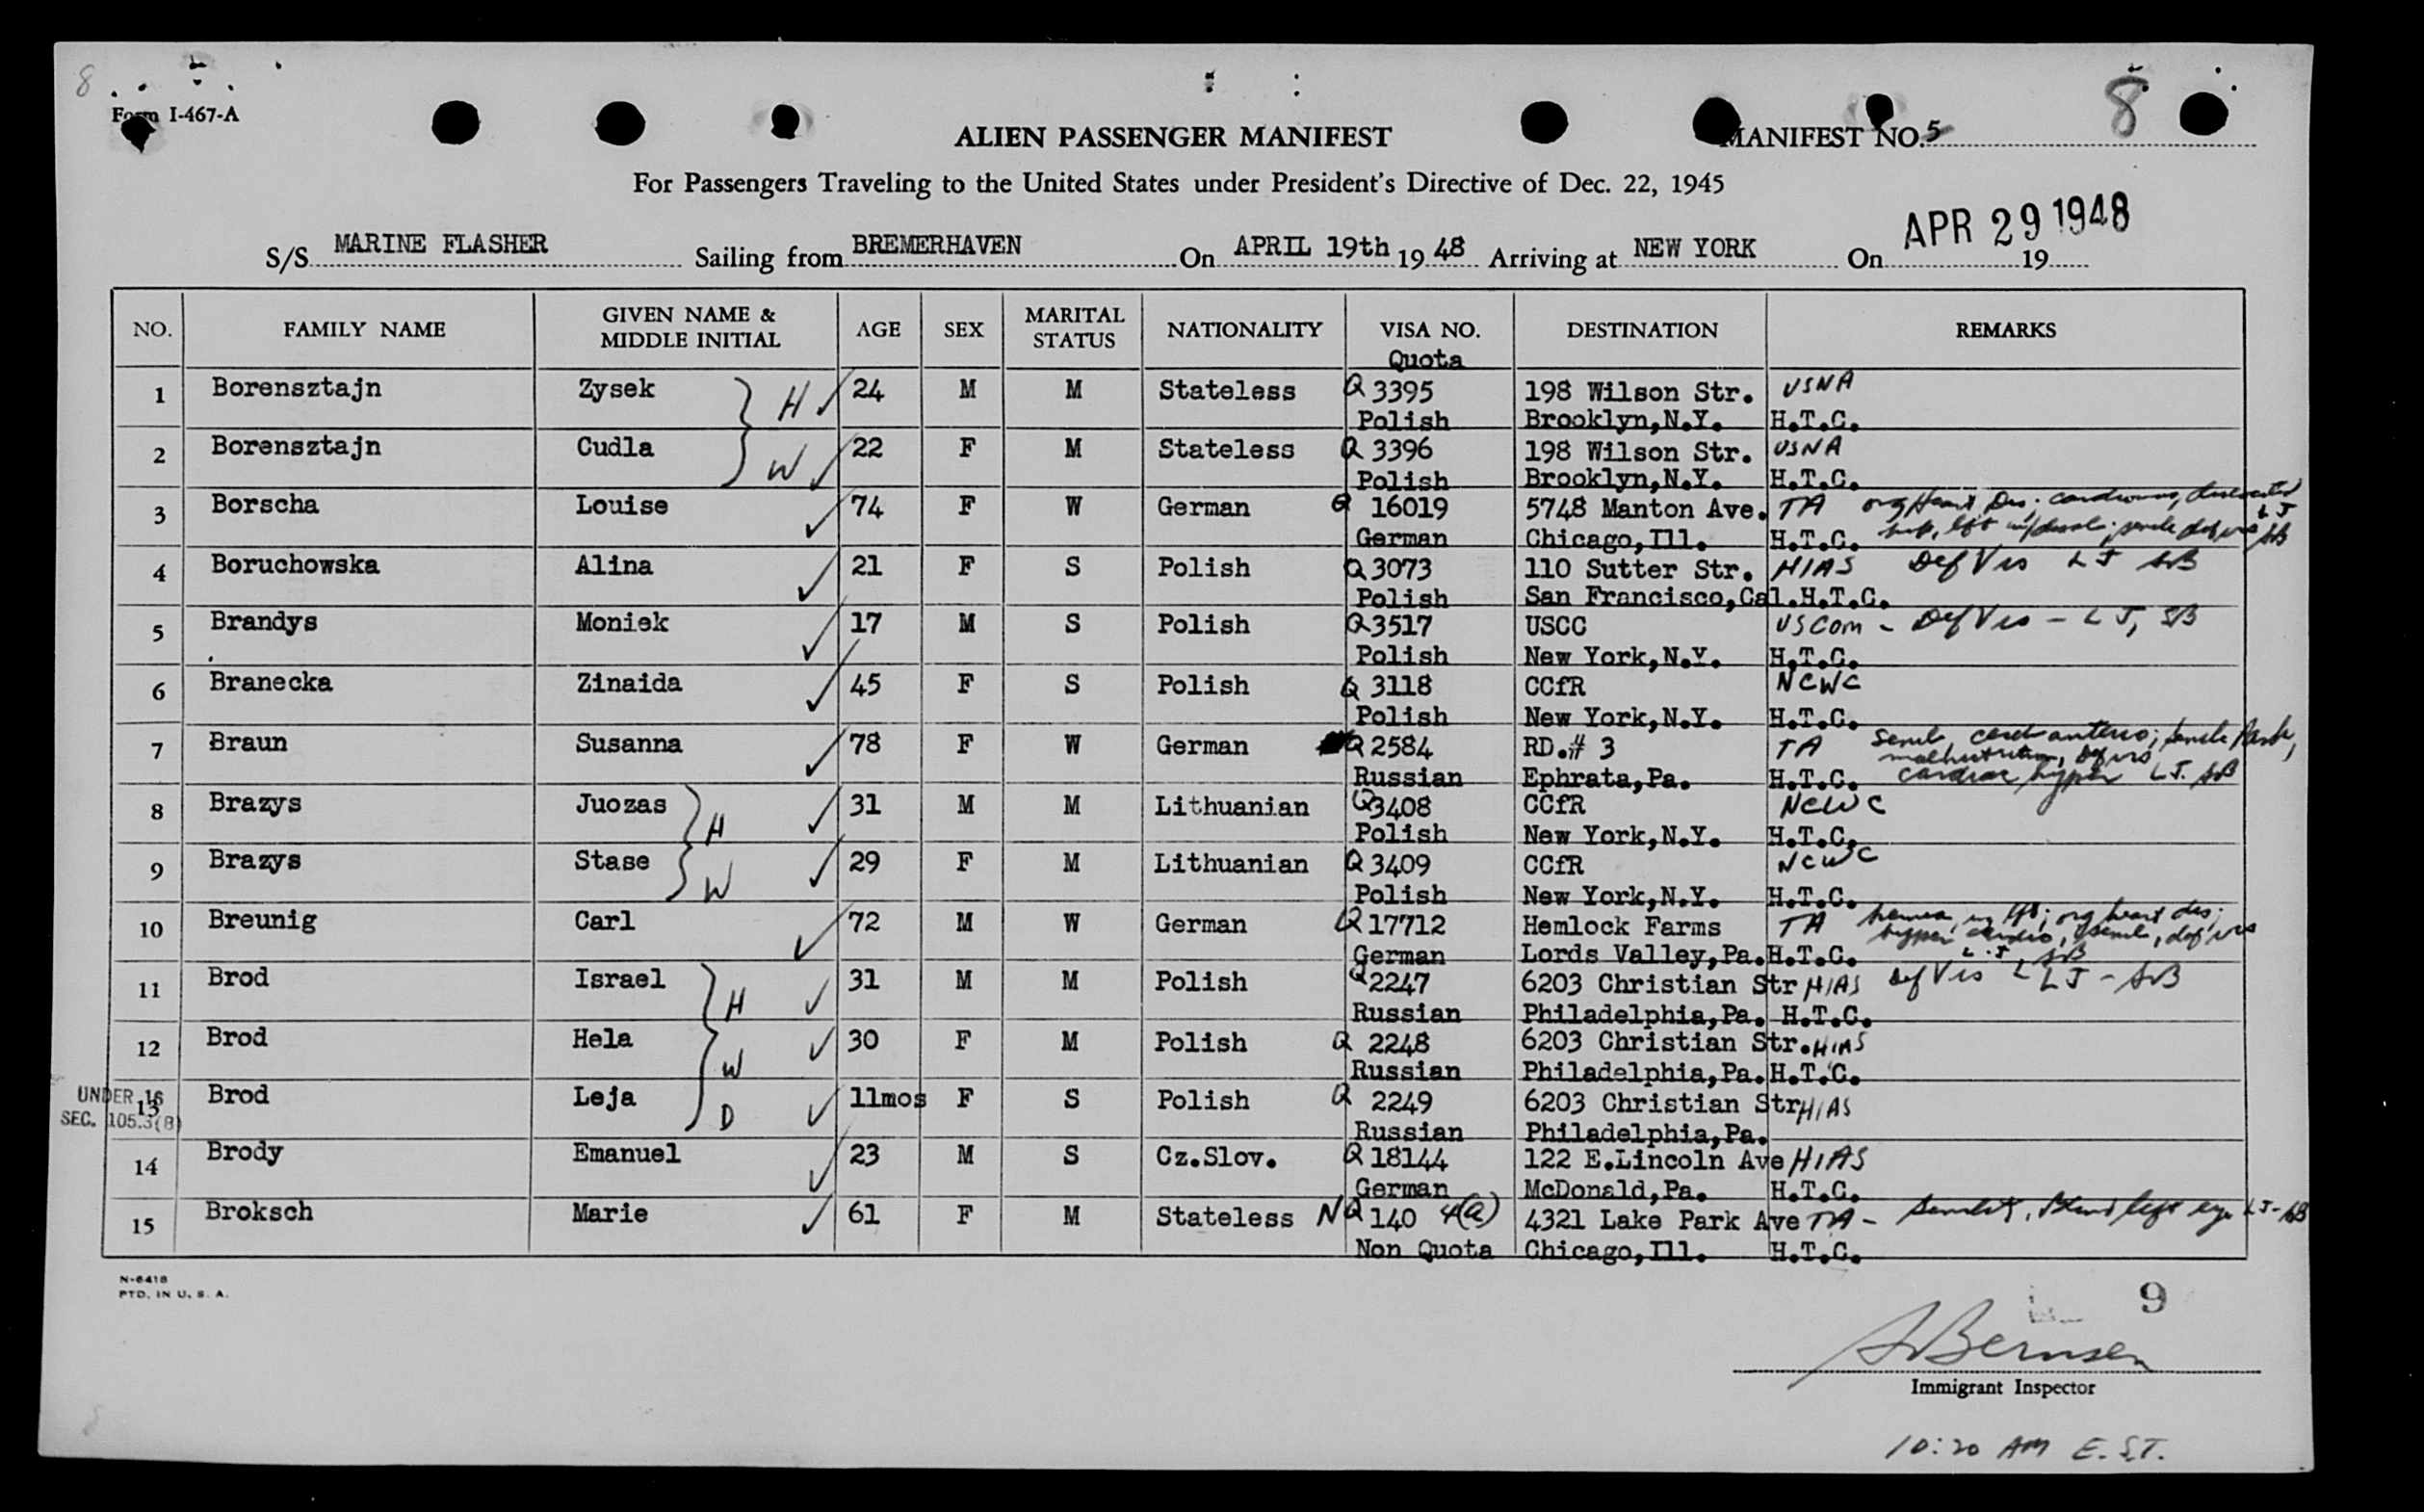 8
Form I-467-A
ALIEN PASSENGER MANIFEST
MANIFEST NO. 5
8
For Passengers Traveling to the United States under President's Directive of Dec. 22, 1945
APR 29 1948
S/S MARINE FLASHER Sailing from BREMERHAVEN On APRIL 19th 19 48 Arriving at NEW YORK On 19
NO. FAMILY NAME GIVEN NAME & MIDDLE INITIAL AGE SEX MARITAL STATUS NATIONALITY VISA NO. DESTINATION REMARKS
Quota
1 Borensztajn Zysek H 24 M M Stateless Q 3395 198 Wilson Str. USNA
Polish Brooklyn,N.Y. H.T.C.
2 Borensztajn Cudla W 22 F M Stateless Q 3396 198 Wilson Str. USNA
Polish Brooklyn,N.Y. H.T.C.
3 Borscha Louise 74 F W German Q 16019 5748 Manton Ave. TA org Heart Dis; LJ
German Chicago,Ill. H.T.C. SB
4 Boruchowska Alina 21 F S Polish Q 3073 110 Sutter Str. HIAS Def Vis LJ SB
Polish San Francisco,Cal. H.T.C.
5 Brandys Moniek 17 M S Polish Q 3517 USCC USCom - Def Vis - LJ, SB
Polish New York,N.Y. H.T.C.
6 Branecka Zinaida 45 F S Polish Q 3118 CCfR NCWC
Polish New York,N.Y. H.T.C.
7 Braun Susanna 78 F W German Q 2584 RD.# 3 TA senile
malnutrition, def vis
Russian Ephrata,Pa. H.T.C. cardiac hyper LJ. SB
8 Brazys Juozas H 31 M M Lithuanian Q 3408 CCfR NCWC
Polish New York,N.Y. H.T.C.
9 Brazys Stase W 29 F M Lithuanian Q 3409 CCfR NCWC
Polish New York,N.Y. H.T.C.
10 Breunig Carl 72 M W German Q 17712 Hemlock Farms TA hernia, org heart dis;
hyper cardio, senile, def vis
German Lords Valley,Pa. H.T.C. L.J. SB
11 Brod Israel H 31 M M Polish Q 2247 6203 Christian Str HIAS Def Vis LJ - SB
Russian Philadelphia,Pa. H.T.C.
12 Brod Hela W 30 F M Polish Q 2248 6203 Christian Str. HIAS
Russian Philadelphia,Pa. H.T.C.
UNDER 16
SEC. 105.3(8)
13 Brod Leja D 11mos F S Polish Q 2249 6203 Christian Str HIAS
Russian Philadelphia,Pa.
14 Brody Emanuel 23 M S Cz.Slov. Q 18144 122 E.Lincoln Ave HIAS
German McDonald,Pa. H.T.C.
15 Broksch Marie 61 F M Stateless NQ 140 4(a) 4321 Lake Park Ave TA - left eye LJ-SB
Non Quota Chicago,Ill. H.T.C.
N-6418
PTD. IN U. S. A.
9
SBernsen
Immigrant Inspector
10:20 AM E.S.T.